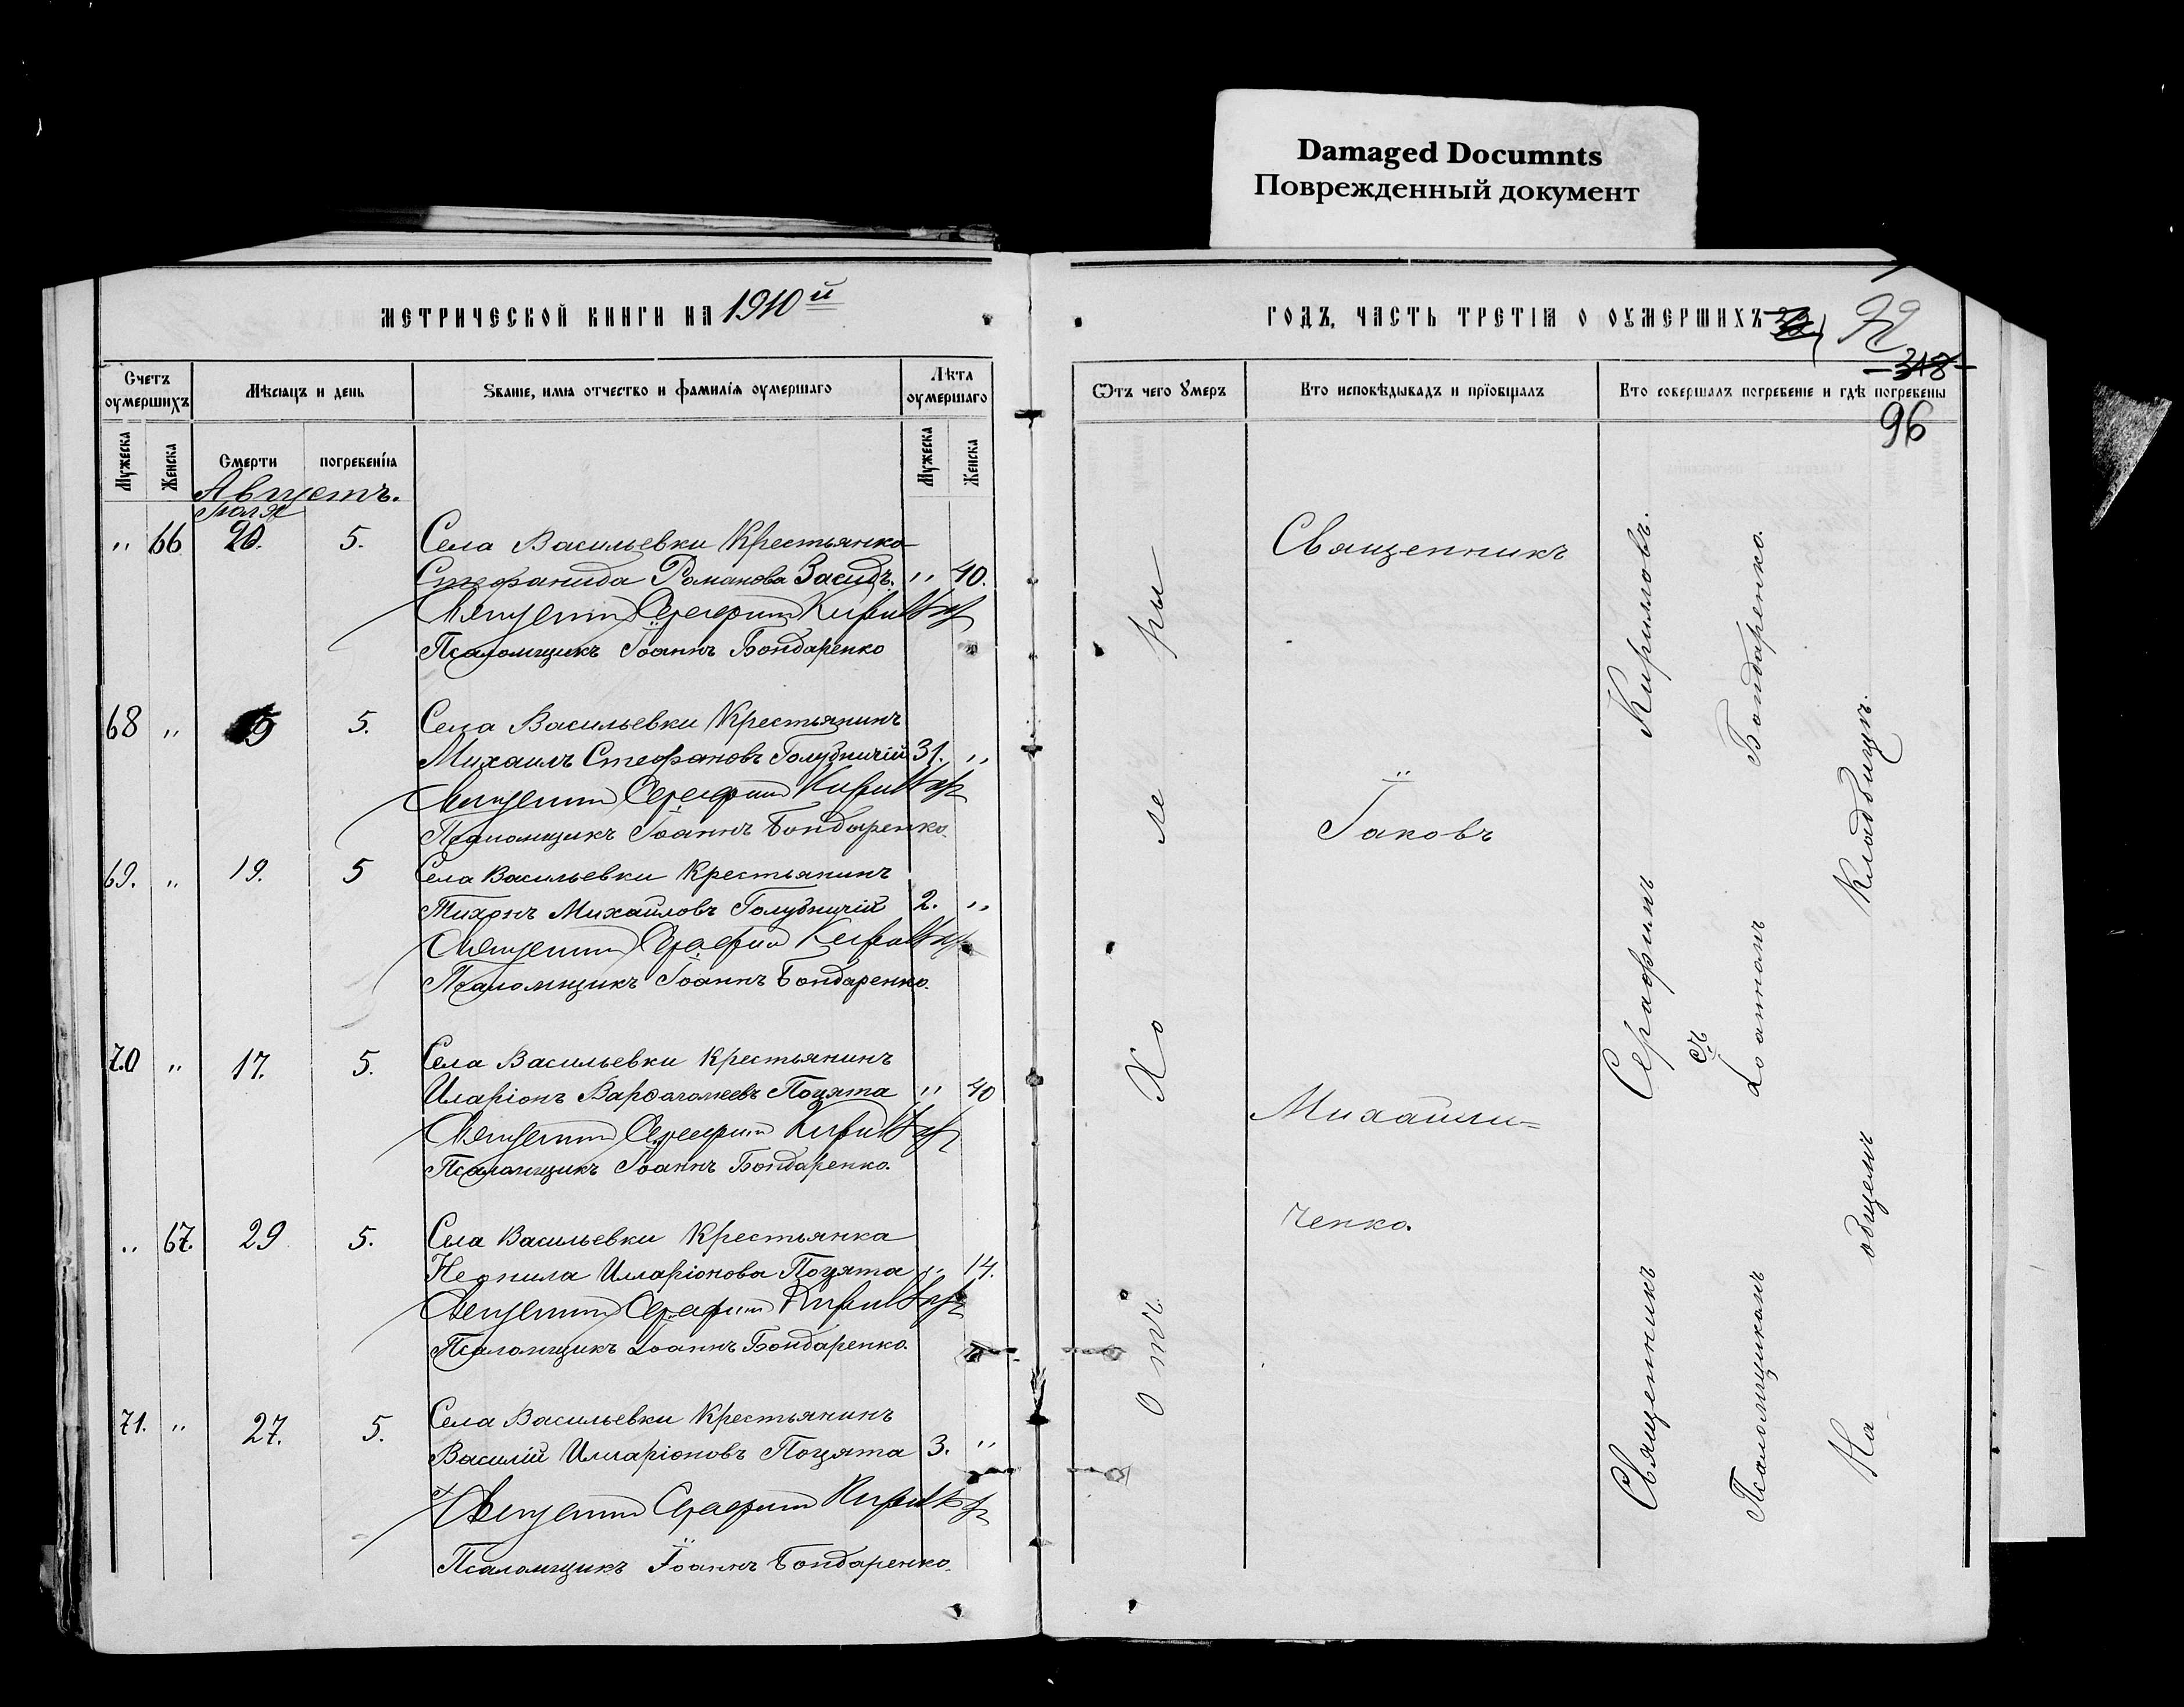 Damaged Documnts
Поврежденный документ
МЕТРИЧЕСКОЙ КНИГИ НА 1910й
Счетъ оумершихъ
Мѣсяцъ и день
Званіе, имя отчество и фамилія оумершаго
Лѣта оумершаго
Мужеска
Женска
Смерти
погребенія
Мужеска
Женска
Августъ.
Іюля
" 66 20. 5. Села Васильевки Крестьянка
Стефанида Романова Засидь. " 40.
Священникъ Серафимъ Кирилловъ
Псаломщикъ Іоаннъ Бондаренко
68 " 5. Села Васильевки Крестьянинъ
Михаилъ Стефановъ Голубничій 31. "
Священникъ Серафимъ Кирилловъ
Псаломщикъ Іоаннъ Бондаренко.
69. " 19. 5 Села Васильевки Крестьянинъ
Тихонъ Михайловъ Голубничій 2. "
Священникъ Серафимъ Кирилловъ
Псаломщикъ Іоаннъ Бондаренко.
70 " 17. 5. Села Васильевки Крестьянинъ
Иларіонъ Варфоломеевъ Поцята " 40
Священникъ Серафимъ Кирилловъ
Псаломщикъ Іоаннъ Бондаренко.
" 67. 29 5. Села Васильевки Крестьянка
Неонила Илларіонова Поцята " 14.
Священникъ Серафимъ Кирилловъ
Псаломщикъ Іоаннъ Бондаренко.
71. " 27. 5. Села Васильевки Крестьянинъ
Василій Илларіоновъ Поцята 3. "
Священникъ Серафимъ Кирилловъ
Псаломщикъ Іоаннъ Бондаренко.
ГОДЪ, ЧАСТЬ ТРЕТІЯ О ОУМЕРШИХЪ
92
318
96
Ѿтъ чего умеръ
Кто исповѣдывалъ и пріобщалъ
Кто совершалъ погребеніе и гдѣ погребены
Отъ Холеры
Священникъ
Іаковъ
Михайли=
ченко.
Священникъ Серафимъ Кирилловъ.
съ
Псаломщикомъ Іоанномъ Бондаренко.
На общемъ Кладбищѣ.